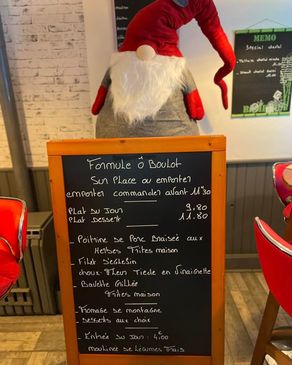 Formule Ô Boulot
Sur Place ou emporter
emporter commander avant 11h30
Plat du Jour 9.80
Plat Dessert 11.80
- Poitrine de Porc Braisée aux
Herbes Frites maison
- Filet d'églefin
choux-Fleurs Tiede en Vinaigrette
- Bavette Grillée
Frites maison
- Fromage de montagne
- Desserts aux choix
- Entrée du Jour : 4.00
mouliné de Légumes Frais
MEMO
Special